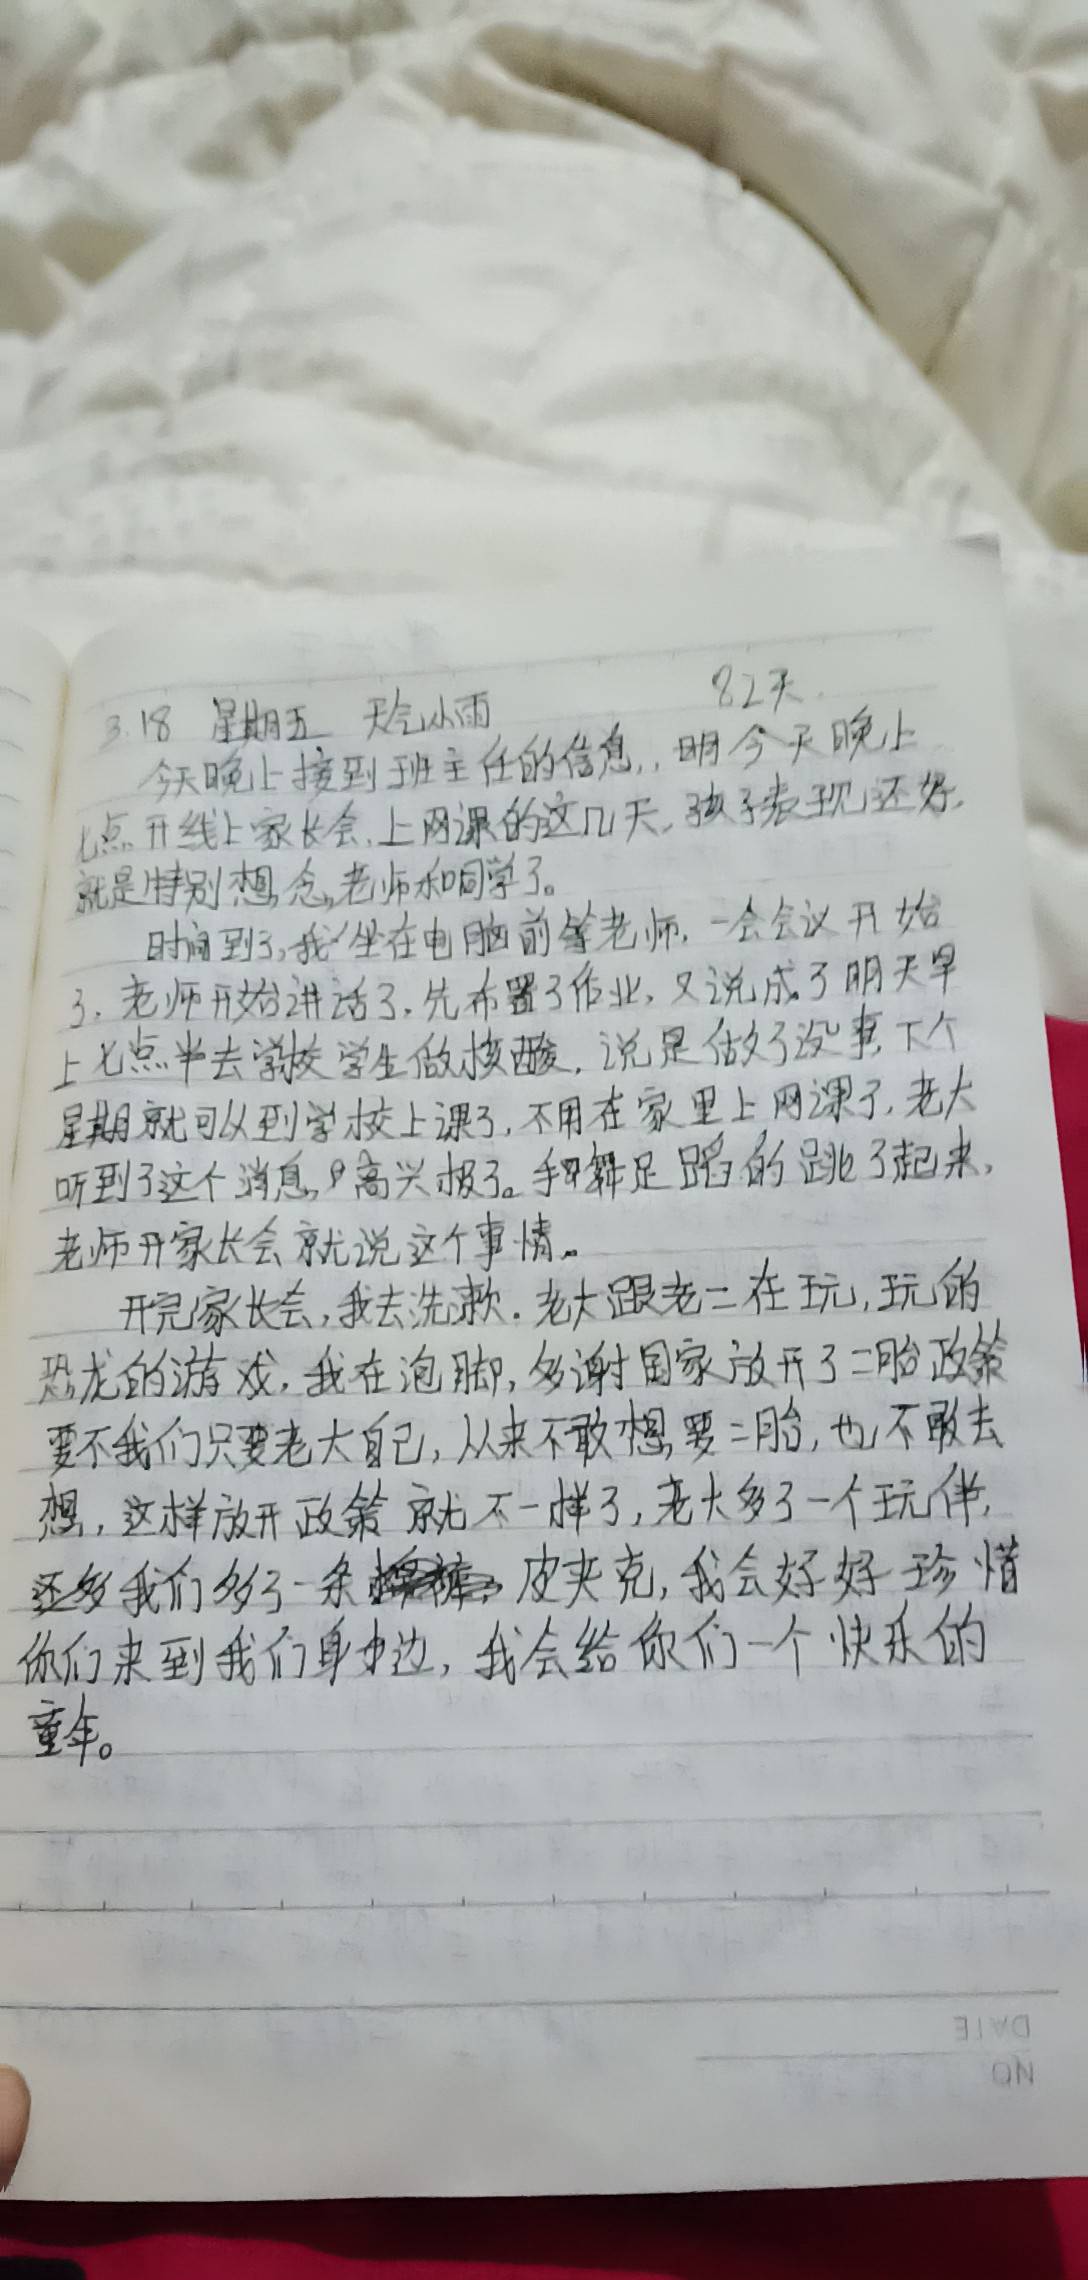 3.18 星期五 天气小雨 82天.
今天晚上接到班主任的信息,,明今天晚上
七点开线上家长会,上网课的这几天,孩子表现还好,
就是特别想念,老师和同学了。
时间到了,我坐在电脑前等老师,一会会议开始
了,老师开始讲话了,先布置了作业,又说成了明天早
上七点半去学校学生做核酸,说是做了没事,下个
星期就可以到学校上课了,不用在家里上网课了,老大
听到了这个消息,高兴极了。手舞足蹈的跳了起来,
老师开家长会就说这个事情。
开完家长会,我去洗漱.老大跟老二在玩,玩的
恐龙的游戏,我在泡脚,多谢国家放开了二胎政策
要不我们只要老大自己,从来不敢想要二胎,也不敢去
想,这样放开政策就不一样了,老大多了一个玩伴,
还多我们多了一条皮夹克,我会好好珍惜
你们来到我们身边,我会给你们一个快乐的
童年。
DATE
NO